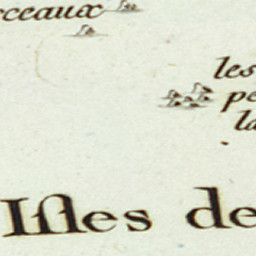 rceaux
les
pe
la
Isles de